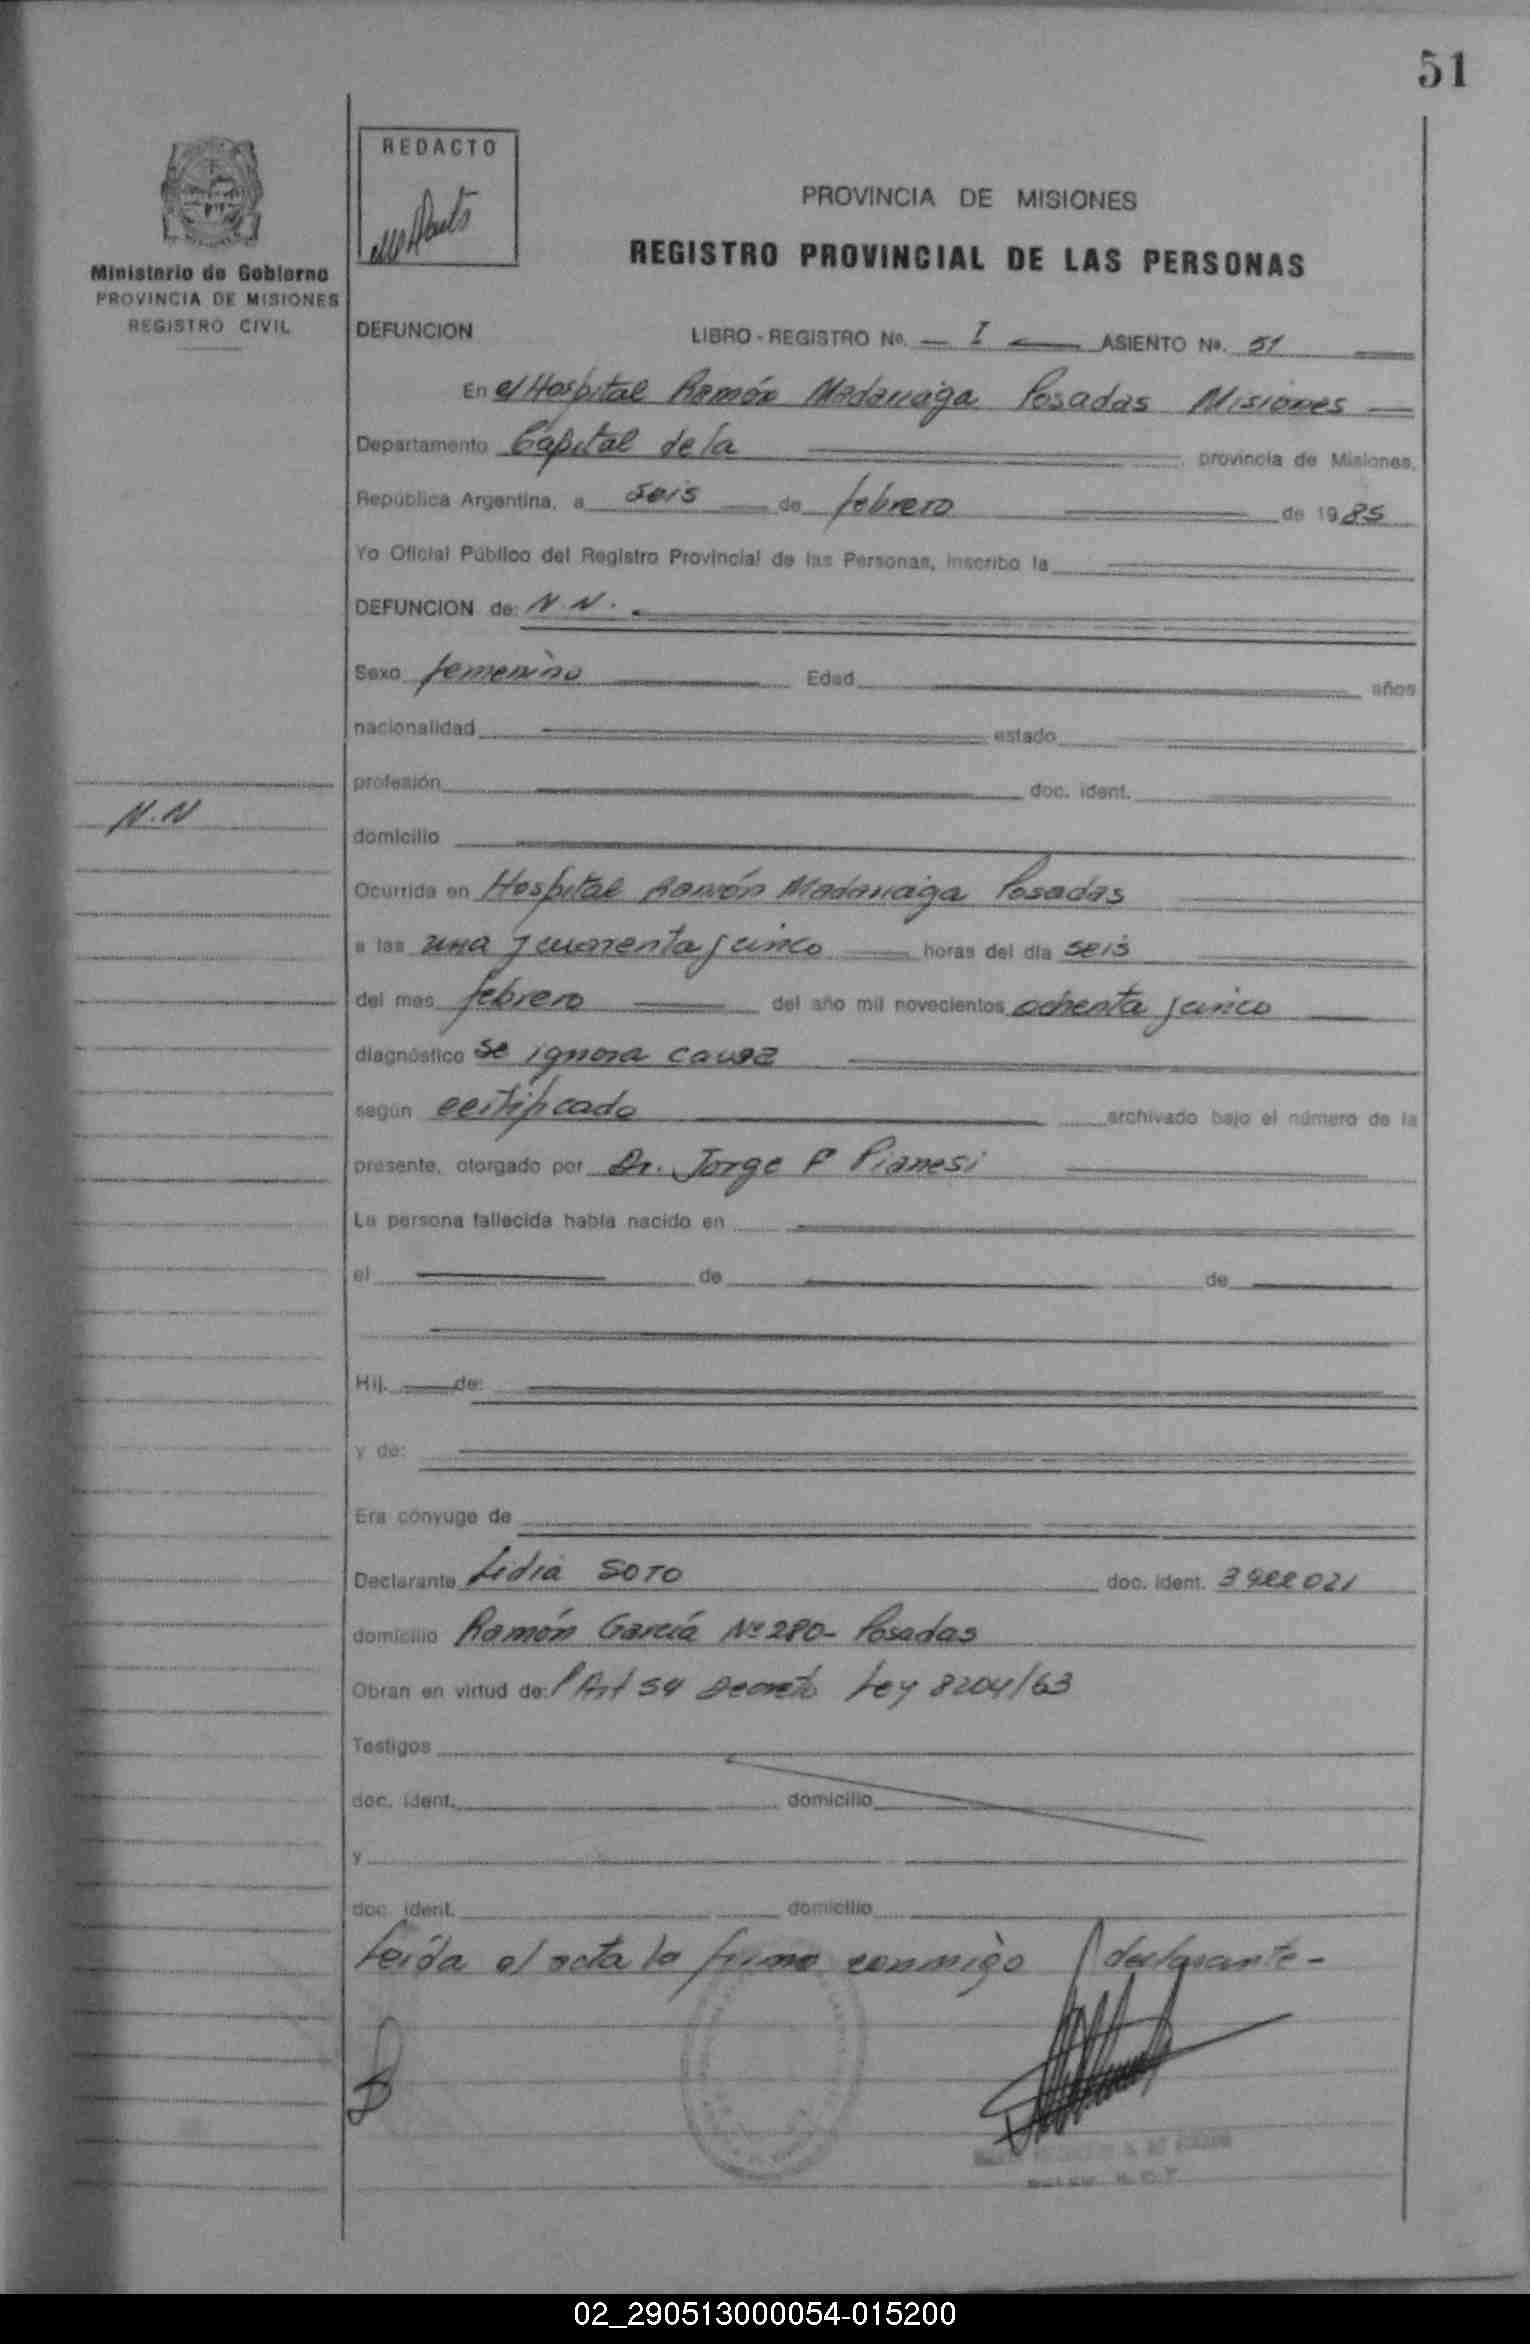 51
REDACTO
Ministerio de Gobierno
PROVINCIA DE MISIONES
REGISTRO CIVIL
PROVINCIA DE MISIONES
REGISTRO PROVINCIAL DE LAS PERSONAS
DEFUNCION LIBRO - REGISTRO No. I ASIENTO No. 51
En el Hospital Ramón Madariaga Posadas Misiones
Departamento Capital de la provincia de Misiones,
República Argentina, a seis de febrero de 1985
Yo Oficial Público del Registro Provincial de las Personas, inscribo la
DEFUNCION de: N.N.
Sexo femenino Edad años
nacionalidad estado
profesión doc. ident.
N.N
domicilio
Ocurrida en Hospital Ramón Madariaga Posadas
a las una y cuarenta y cinco horas del día seis
del mes febrero del año mil novecientos ochenta y cinco
diagnóstico se ignora causa
según certificado archivado bajo el número de la
presente, otorgado por Dr. Jorge P Pianesi
La persona fallecida había nacido en
el de de
Hij. de:
y de:
Era cónyuge de
Declarante Lidia SOTO doc. ident. 3922021
domicilio Ramón García Nº 280- Posadas
Obran en virtud de: l Art 54 Decreto Ley 8204/63
Testigos
doc. ident. domicilio
y
doc. ident. domicilio
Leída el acta la firma conmigo l declarante -
02_290513000054-015200